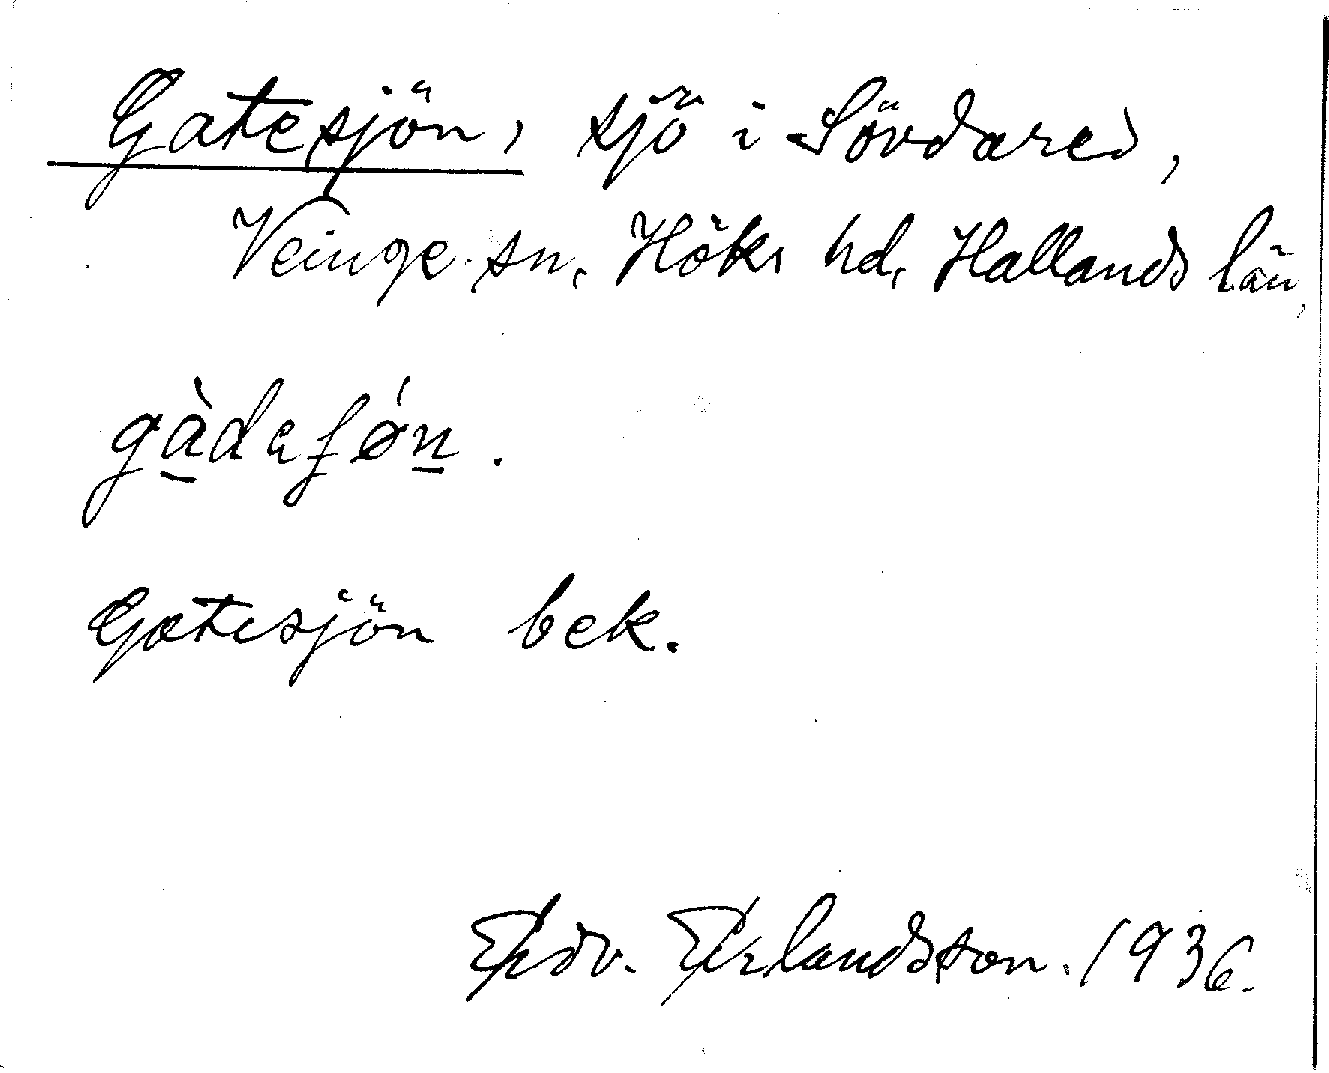 Gatesjön, sjö i Sövdared,
Veinge sn, Höks hd, Hallands län,
gàdaʃǿn.
Gatesjön bek.
Edv. Erlandsson. 1936.